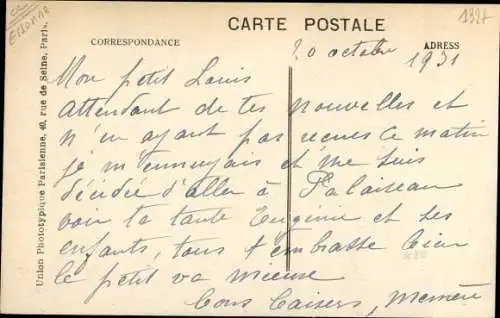 CARTE POSTALE
CORRESPONDANCE
ADRESS
Essonne
1327
20 octobre
1931
Mon petit Louis
Attendant de tes nouvelles et
n'en ayant pas reçues ce matin
je m'ennuyais et me suis
décidée d'aller à Palaiseau
voir ta tante Eugénie et ses
enfants, tous t'embrasse bien
le petit va mieux
Bons baisers, Mémère
Union Phototypique Parisienne, 40, rue de Seine, Paris.